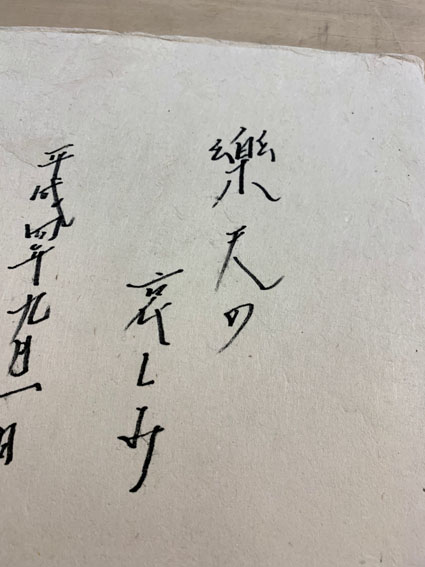 樂天の
哀しみ
平成四年九月一日